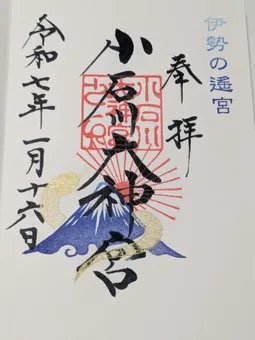 伊勢の遥宮
奉拝
小石川大神宮
令和七年一月十六日